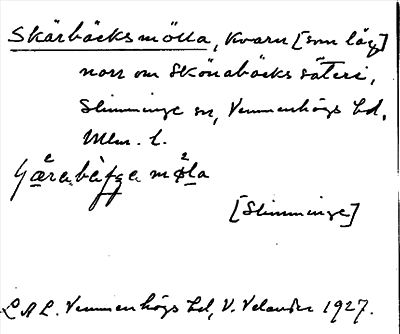 Skärbäcksmölla, kvarn [som låg]
norr om Skönabäcks säteri,
Slimminge sn, Vemmenhögs hd,
Mlm. l.
[Slimminge]
L A L. Vemmenhögs hd, V. Velander 1927.